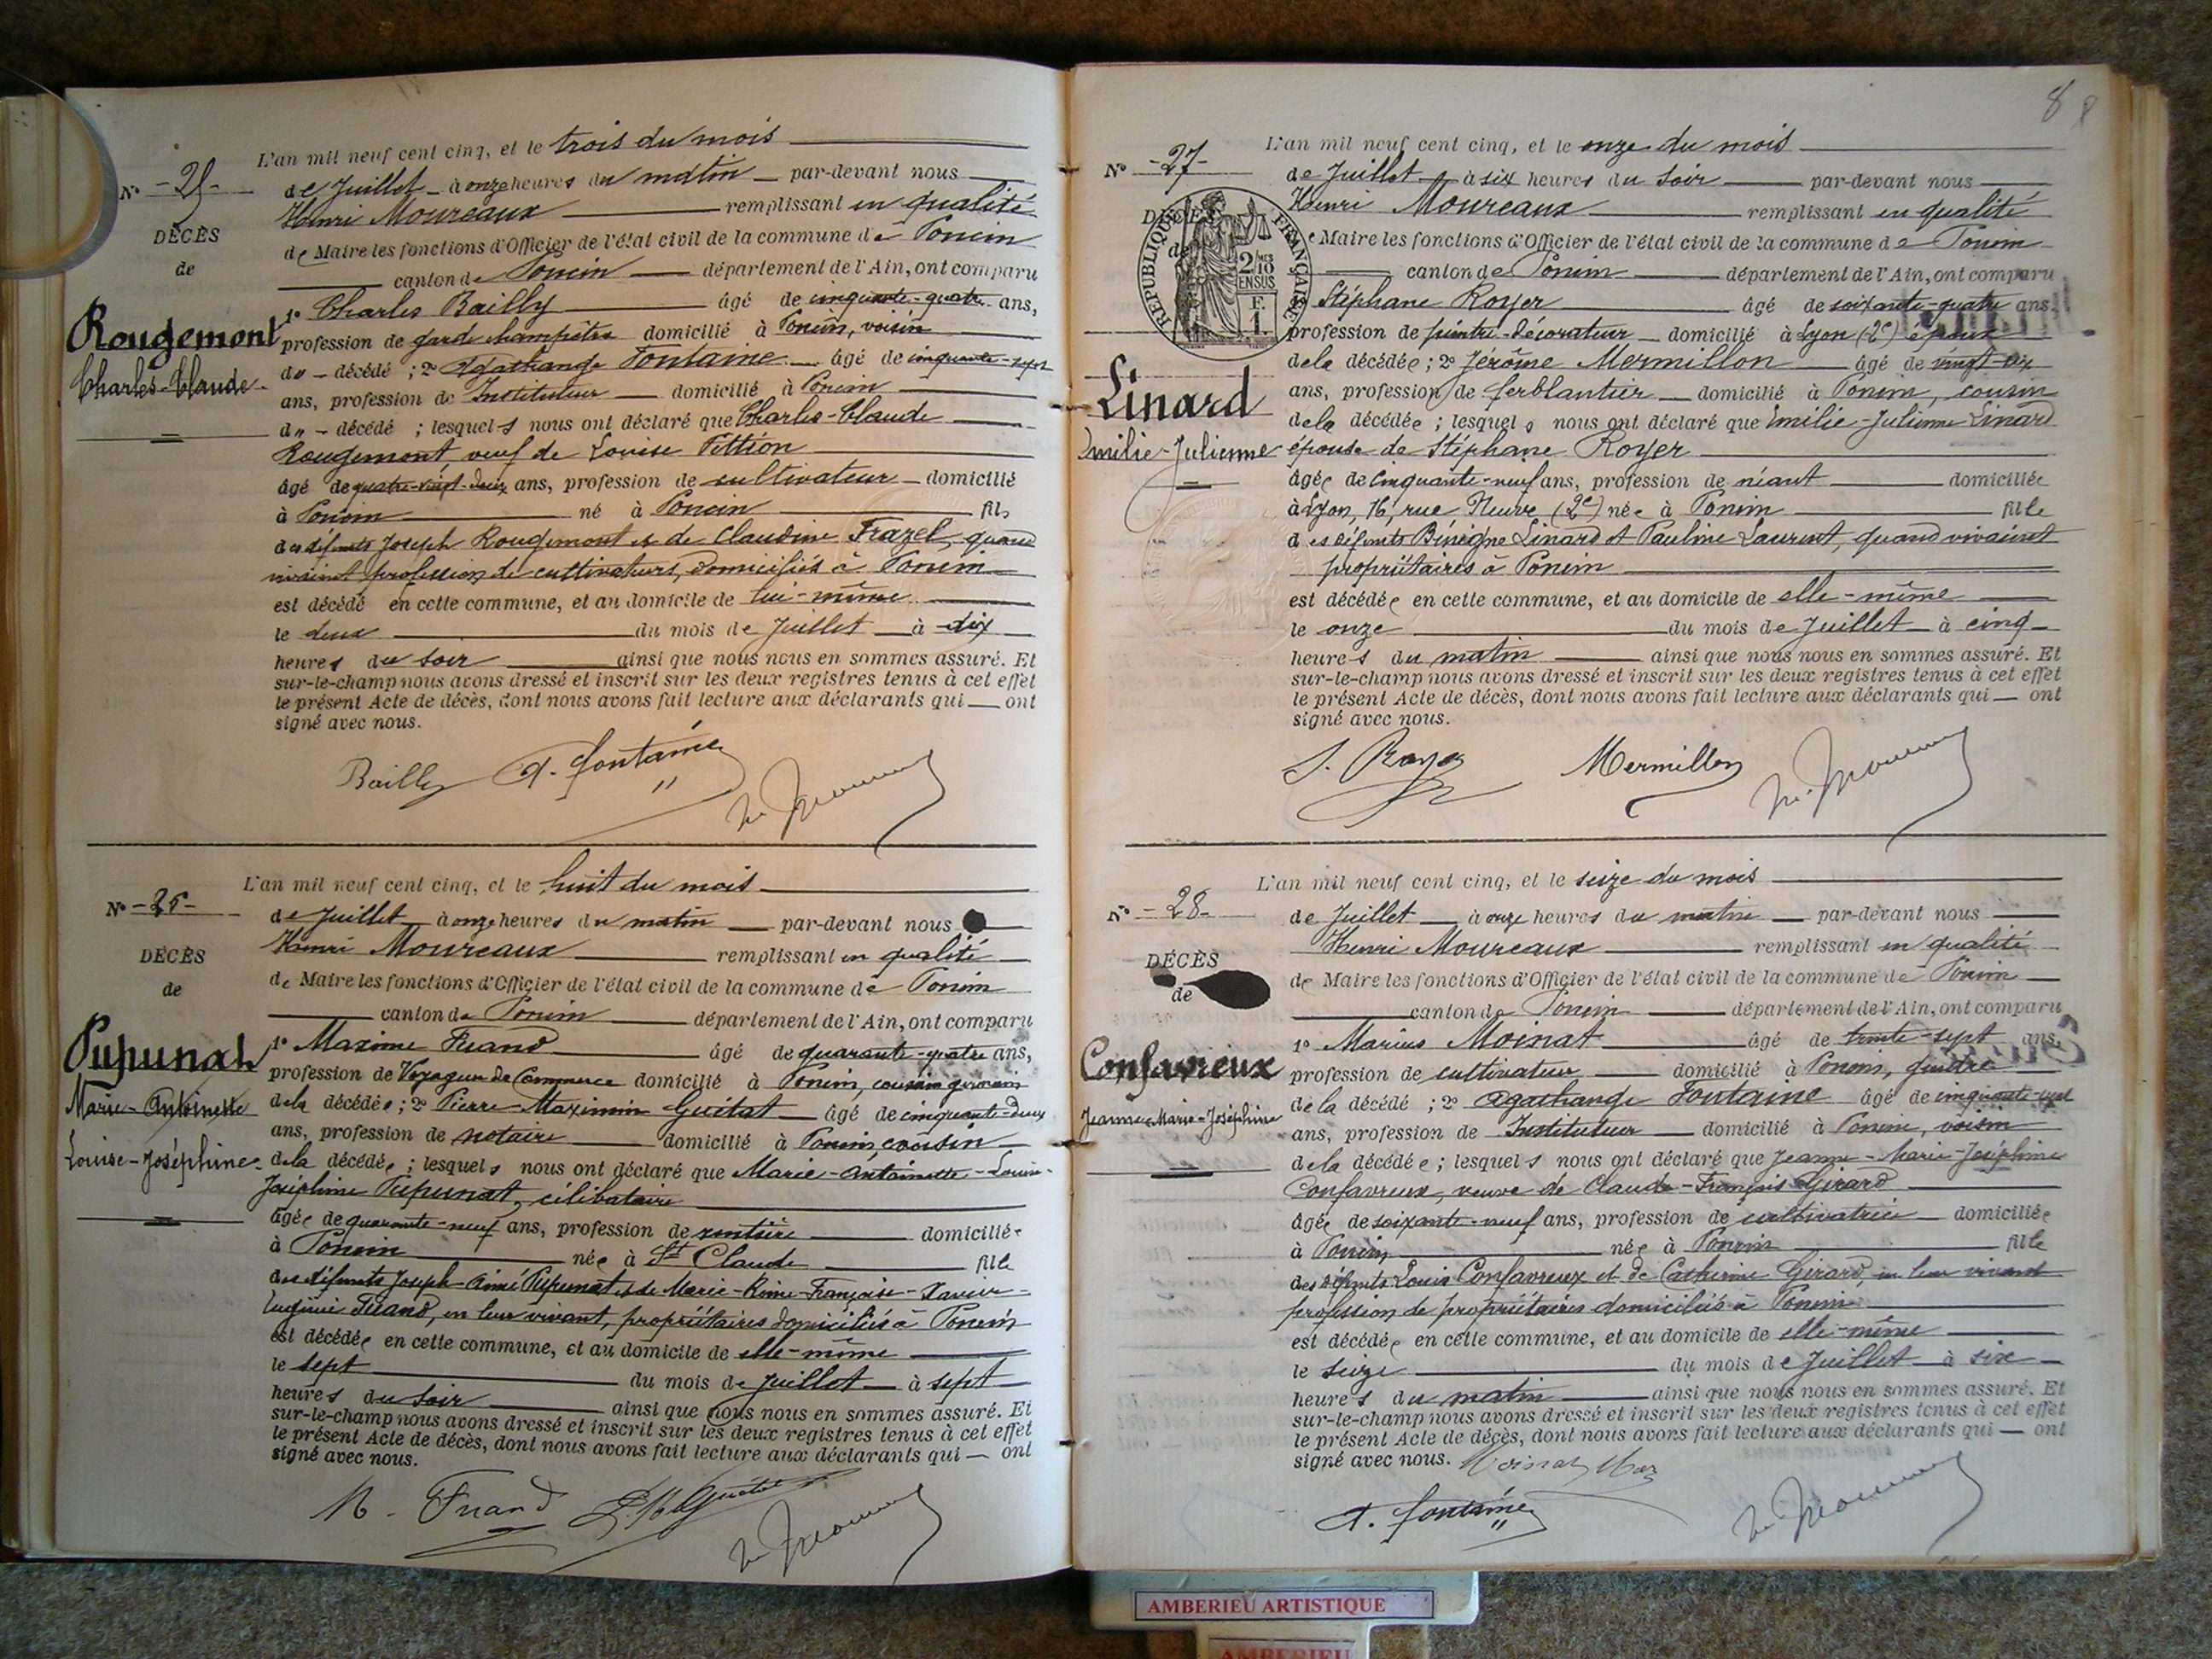 N° -25-
DÉCÈS
de
Rougemont
Charles-Claude-
L'an mil neuf cent cinq, et le trois du mois
de Juillet à onze heures du matin par-devant nous
Henri Moureaux remplissant en qualité
de Maire les fonctions d'Officier de l'état civil de la commune de Poncin
canton de Poncin département de l'Ain, ont comparu
1° Charles Bailly âgé de cinquante-quatre ans,
profession de garde champêtre domicilié à Poncin, voisin
du décédé ; 2° Agathange Fontaine âgé de cinquante-sept
ans, profession de Instituteur domicilié à Poncin
du décédé ; lesquels nous ont déclaré que Charles-Claude
Rougemont, veuf de Louise Pittion
âgé de quatre-vingt-deux ans, profession de cultivateur domicilié
à Poncin né à Poncin fils
des défunts Joseph Rougemont et de Claudine Frazel, quand
vivaient profession de cultivateurs, domiciliés à Poncin
est décédé en cette commune, et au domicile de lui-même
le deux du mois de Juillet à dix
heures du soir ainsi que nous nous en sommes assuré. Et
sur-le-champ nous avons dressé et inscrit sur les deux registres tenus à cet effet
le présent Acte de décès, dont nous avons fait lecture aux déclarants qui ont
signé avec nous.
Bailly A. Fontaine
N° -26-
DÉCÈS
de
Pupunat
Marie-Antoinette
Louise-Joséphine-
L'an mil neuf cent cinq, et le huit du mois
de Juillet à onze heures du matin par-devant nous
Henri Moureaux remplissant en qualité
de Maire les fonctions d'Officier de l'état civil de la commune de Poncin
canton de Poncin département de l'Ain, ont comparu
1° Maxime Fuand âgé de quarante-quatre ans,
profession de Voyageur de Commerce domicilié à Poncin, cousin germain
de la décédée ; 2° Pierre-Maximin Guitat âgé de cinquante-deux
ans, profession de notaire domicilié à Poncin, cousin
de la décédée ; lesquels nous ont déclaré que Marie-Antoinette-Louise-
Joséphine Pupunat, célibataire
âgée de quarante-neuf ans, profession de rentière domiciliée
à Poncin née à St Claude fille
des défunts Joseph-Aimé Pupunat et de Marie-Françoise-Xavier-
Eugénie Fuand, en leur vivant, propriétaires domiciliés à Poncin
est décédée en cette commune, et au domicile de elle-même
le sept du mois de Juillet à sept
heures du soir ainsi que nous nous en sommes assuré. Et
sur-le-champ nous avons dressé et inscrit sur les deux registres tenus à cet effet
le présent Acte de décès, dont nous avons fait lecture aux déclarants qui ont
signé avec nous.
M. Fuand
8
N° -27-
DÉCÈS
de
RÉPUBLIQUE FRANÇAISE
2/10 EN SUS
F. 1.
Linard
Emilie-Julienne
L'an mil neuf cent cinq, et le onze du mois
de Juillet à six heures du soir par-devant nous
Henri Moureaux remplissant en qualité
de Maire les fonctions d'Officier de l'état civil de la commune de Poncin
canton de Poncin département de l'Ain, ont comparu
1° Stéphane Royer âgé de soixante-quatre ans,
profession de peintre-décorateur domicilié à Lyon (2e) époux
de la décédée ; 2° Jérôme Mermillon âgé de vingt-six
ans, profession de ferblantier domicilié à Poncin, cousin
de la décédée ; lesquels nous ont déclaré que Emilie-Julienne Linard
épouse de Stéphane Royer
âgée de cinquante-neuf ans, profession de néant domiciliée
à Lyon, 16, rue Neuve (2e) née à Poncin fille
des défunts Bénigne Linard et Pauline Laurent, quand vivaient
propriétaires à Poncin
est décédée en cette commune, et au domicile de elle-même
le onze du mois de Juillet à cinq
heures du matin ainsi que nous nous en sommes assuré. Et
sur-le-champ nous avons dressé et inscrit sur les deux registres tenus à cet effet
le présent Acte de décès, dont nous avons fait lecture aux déclarants qui ont
signé avec nous.
S. Royer Mermillon
N° -28-
DÉCÈS
de
Confavreux
Jeanne-Marie-Joséphine
L'an mil neuf cent cinq, et le seize du mois
de Juillet à onze heures du matin par-devant nous
Henri Moureaux remplissant en qualité
de Maire les fonctions d'Officier de l'état civil de la commune de Poncin
canton de Poncin département de l'Ain, ont comparu
1° Marius Moinat âgé de trente-sept ans,
profession de cultivateur domicilié à Poncin, gendre
de la décédé ; 2° Agathange Fontaine âgé de cinquante-sept
ans, profession de Instituteur domicilié à Poncin, voisin
de la décédée ; lesquels nous ont déclaré que Jeanne-Marie-Joséphine
Confavreux, veuve de Claude-François Girard
âgée de soixante-neuf ans, profession de cultivatrice domiciliée
à Poncin née à Poncin fille
des défunts Louis Confavreux et de Catherine Girard, en leur vivant
profession de propriétaires domiciliés à Poncin
est décédée en cette commune, et au domicile de elle-même
le seize du mois de Juillet à six
heures du matin ainsi que nous nous en sommes assuré. Et
sur-le-champ nous avons dressé et inscrit sur les deux registres tenus à cet effet
le présent Acte de décès, dont nous avons fait lecture aux déclarants qui ont
signé avec nous. Moinat
A. Fontaine
AMBERIEU ARTISTIQUE
AMBERIEU